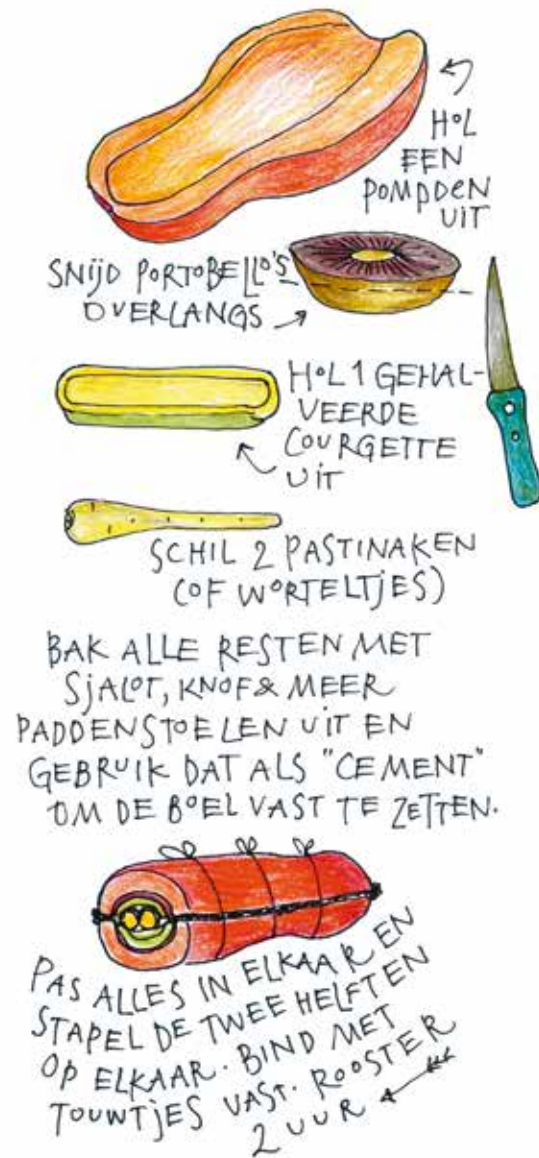 HOL
EEN
POMPOEN
UIT
SNIJD PORTOBELLO'S
OVERLANGS
HOL 1 GEHAL-
VEERDE
COURGETTE
UIT
SCHIL 2 PASTINAKEN
(OF WORTELTJES)
BAK ALLE RESTEN MET
SJALOT, KNOF & MEER
PADDENSTOELEN UIT EN
GEBRUIK DAT ALS "CEMENT"
OM DE BOEL VAST TE ZETTEN.
PAS ALLES IN ELKAAR EN
STAPEL DE TWEE HELFTEN
OP ELKAAR. BIND MET
TOUWTJES VAST. ROOSTER
2 UUR